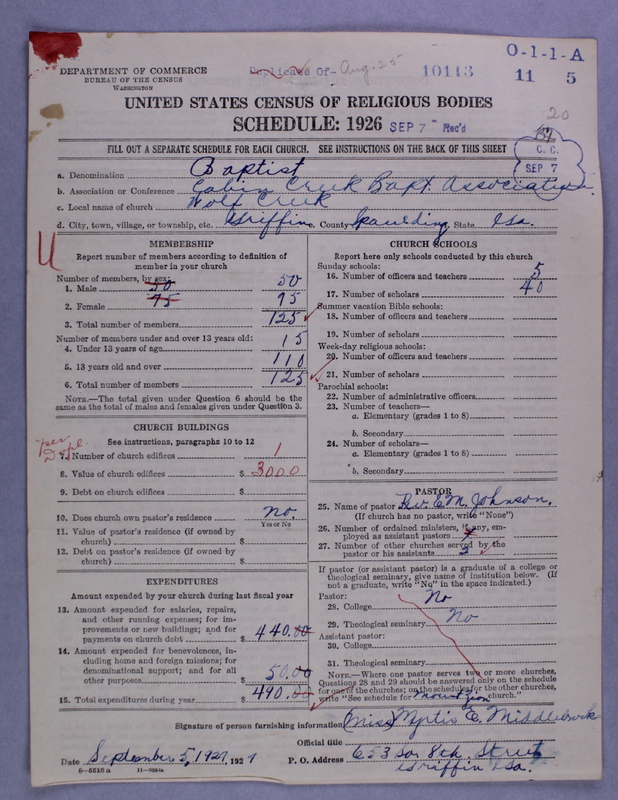 O-1-1-A
DEPARTMENT OF COMMERCE
BUREAU OF THE CENSUS
WASHINGTON
Duplicate Of- Aug. 25
10113
11 5
UNITED STATES CENSUS OF RELIGIOUS BODIES
SCHEDULE: 1926
SEP 7 Rec'd
20
C. C.
SEP 7
FILL OUT A SEPARATE SCHEDULE FOR EACH CHURCH. SEE INSTRUCTIONS ON THE BACK OF THIS SHEET
a. Denomination Baptist
b. Association or Conference Cabin Creek Bapt. Association
c. Local name of church Wolf Creek
d. City, town, village, or township, etc. Griffin County Spaulding State Ga.
MEMBERSHIP
Report number of members according to definition of
member in your church
Number of members, by sex:
1. Male 50 50
2. Female 75 75
3. Total number of members 125
Number of members under and over 13 years old:
4. Under 13 years of age 15
5. 13 years old and over 110
6. Total number of members 125
NOTE.—The total given under Question 6 should be the
same as the total of males and females given under Question 3.
CHURCH BUILDINGS
See instructions, paragraphs 10 to 12
per Dupl.
7. Number of church edifices 1
8. Value of church edifices $ 3000
9. Debt on church edifices $
10. Does church own pastor's residence no.
Yes or No
11. Value of pastor's residence (if owned by
church) $
12. Debt on pastor's residence (if owned by
church) $
EXPENDITURES
Amount expended by your church during last fiscal year
13. Amount expended for salaries, repairs,
and other running expenses; for im-
provements or new buildings; and for
payments on church debt $ 440.00
14. Amount expended for benevolences, in-
cluding home and foreign missions; for
denominational support; and for all
other purposes $ 50.00
15. Total expenditures during year $ 490.00
CHURCH SCHOOLS
Report here only schools conducted by this church
Sunday schools:
16. Number of officers and teachers 5
17. Number of scholars 40
Summer vacation Bible schools:
18. Number of officers and teachers
19. Number of scholars
Week-day religious schools:
20. Number of officers and teachers
21. Number of scholars
Parochial schools:
22. Number of administrative officers
23. Number of teachers—
a. Elementary (grades 1 to 8)
b. Secondary
24. Number of scholars—
a. Elementary (grades 1 to 8)
b. Secondary
PASTOR
25. Name of pastor Rev. C. M. Johnson.
(If church has no pastor, write "None")
26. Number of ordained ministers, if any, em-
ployed as assistant pastors
27. Number of other churches served by the
pastor or his assistants 3
If pastor (or assistant pastor) is a graduate of a college or
theological seminary, give name of institution below. (If
not a graduate, write "No" in the space indicated.)
Pastor:
28. College No
29. Theological seminary No
Assistant pastor:
30. College
31. Theological seminary
NOTE.—Where one pastor serves two or more churches,
Questions 28 and 29 should be answered only on the schedule
for one of the churches; on the schedules for the other churches,
write "See schedule for Mount Zion church."
Signature of person furnishing information Miss Myrtis E. Middlebrook
Official title
Date September 5, 1927, 192 7
P. O. Address 653 So. 8th. Street
Griffin Ga.
6-5518 a